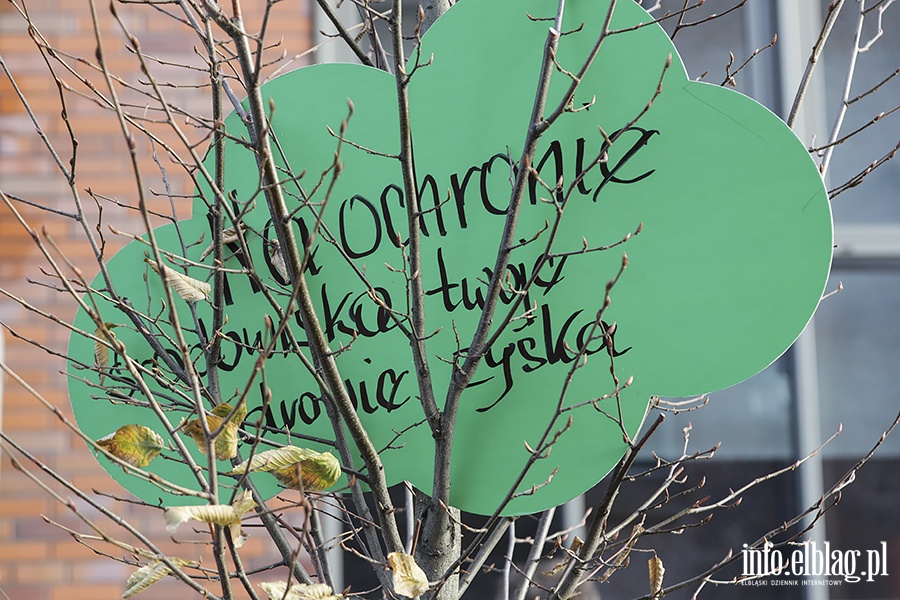 Na ochronie
środowiska twoje
zdrowie zyska
info.elblag.pl
ELBLĄSKI DZIENNIK INTERNETOWY